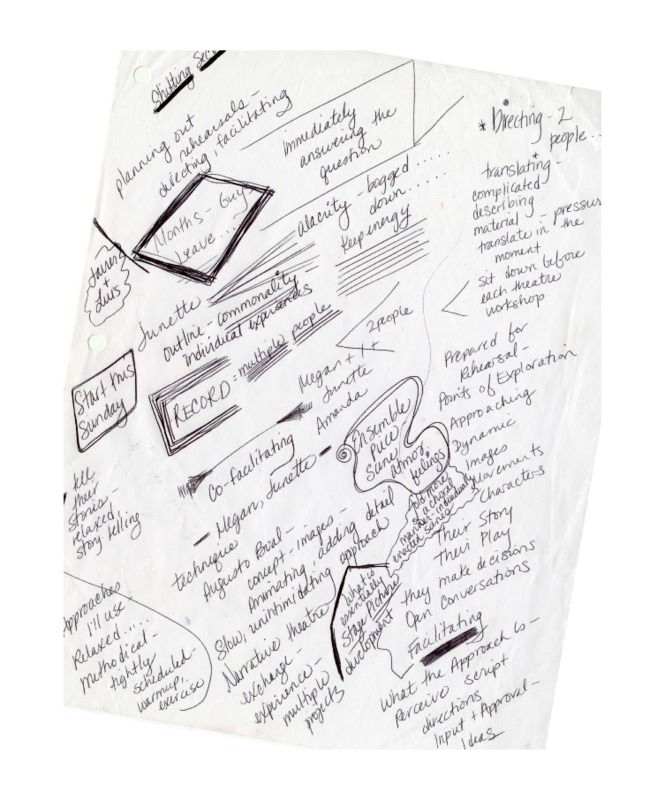 Shifting
planning out
rehearsals -
directing, facilitating
immediately
answering the
question
* Directing - 2
people...
translating -
complicated
describing
material - pressure
translate in the
moment
sit down before
each theatre
workshop
Months - Guy
Leave....
alacrity - bogged
down......
Keep energy
Junette
outline - commonality
individual experiences
Start this
Sunday
RECORD = multiple people
2 people
Megan + 1 +
Junette
Amanda
Co-facilitating
- Megan, Junette -
Ensemble
Piece
feelings
Prepared for
Rehearsal -
Points of Exploration
Approaching
Dynamic
Images
Movements
Characters
tell
their
stories -
relaxed
story telling
technique
Augusto Boal -
concept - images -
Animating, adding detail
Slow, unintimidating approach
Narrative theatre
exchange -
experience -
multiple
projects
what is
eventually
Stage Pictures
development
Their Story
Their Play
they make decisions
Open Conversations
Facilitating
What the Approach is -
Perceive script
directions
Input + Approval -
Ideas
Approaches
I'll use
Relaxed....
Methodical -
tightly
scheduled -
warmup,
exercise